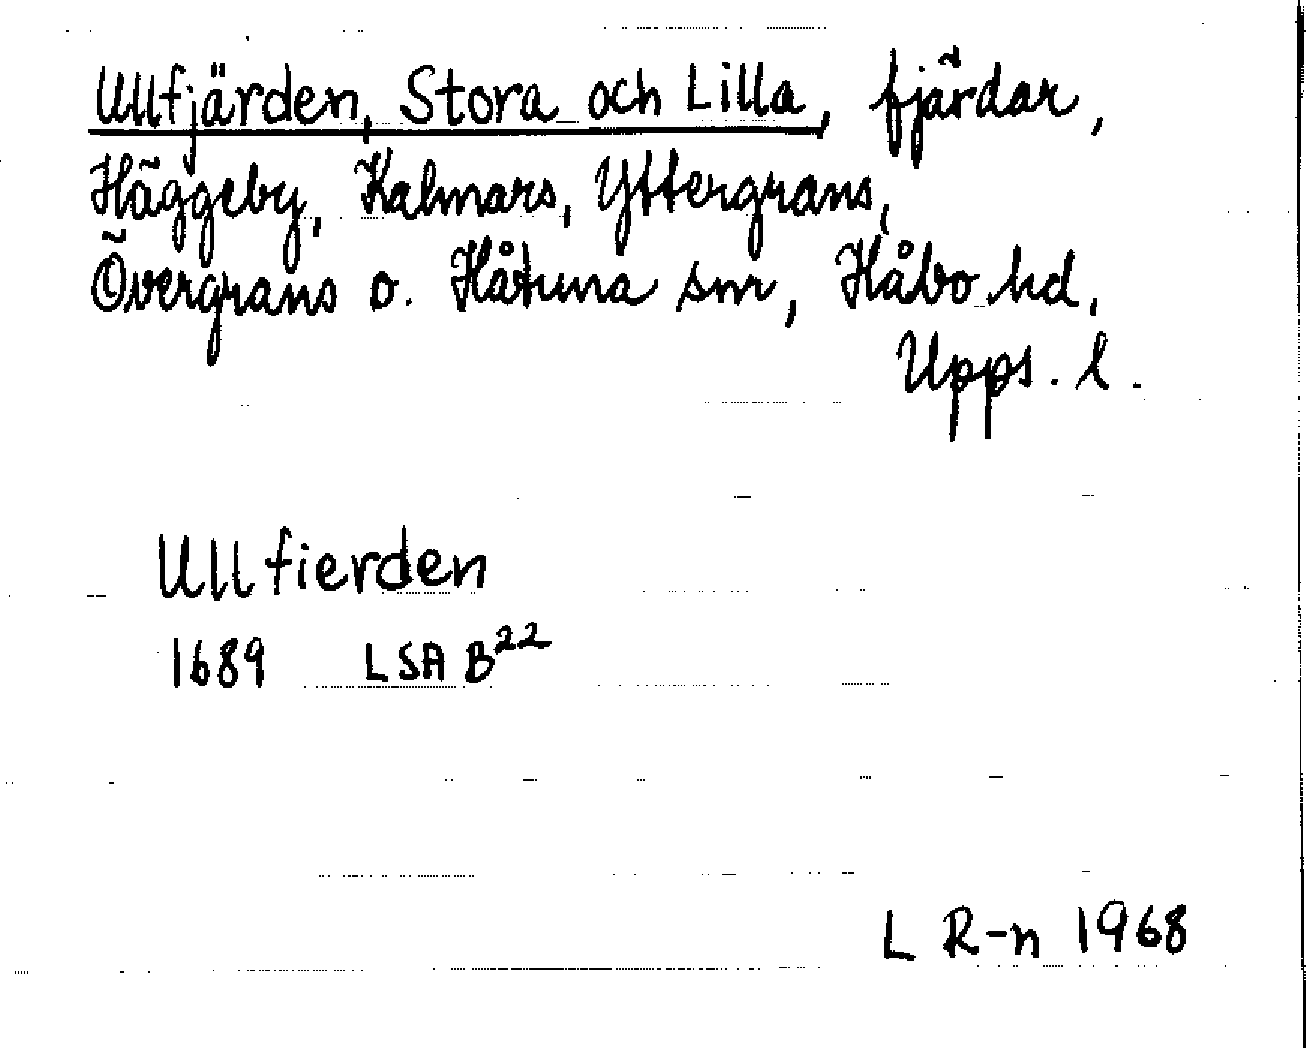 Ullfjärden, Stora och Lilla, fjärdar,
Häggeby, Kalmars, Yttergrans,
Övergrans o. Håtuna snr, Håbo hd,
Upps. l.
Ullfierden
1689 LSA B²²
L R-n 1968